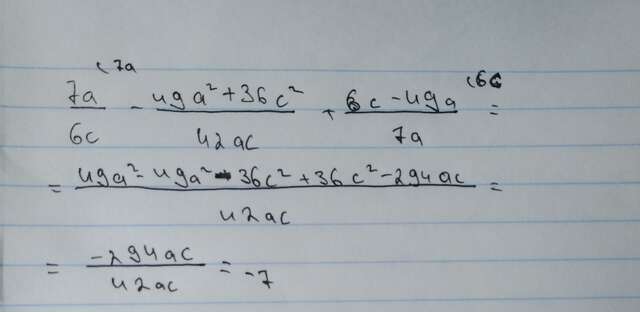 7a/6c (7a - 49a² + 36c²/42ac + 6c - 49a/7a (6c =
= 49a² - 49a² - 36c² + 36c² - 294ac/42ac =
= -294ac/42ac = -7